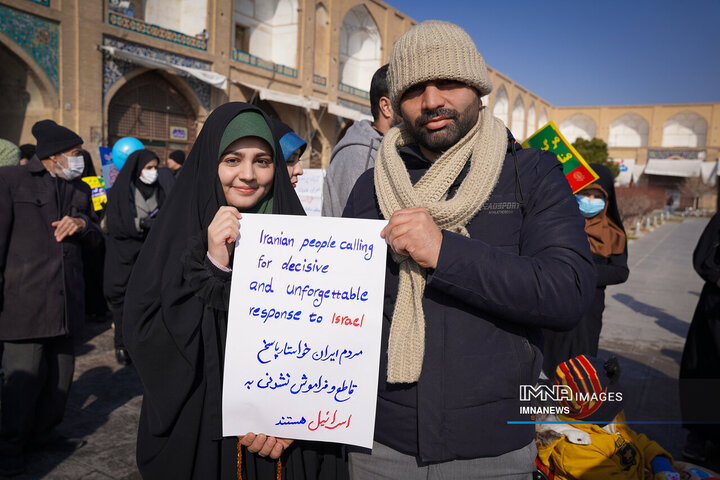 Iranian people calling
for decisive
and unforgettable
response to Israel
مردم ایران خواستار پاسخ
قاطع و فراموش نشدنی به
اسرائیل هستند
IMNA IMAGES
IMNANEWS
IMNA IMAGES
IMNANEWS.IR